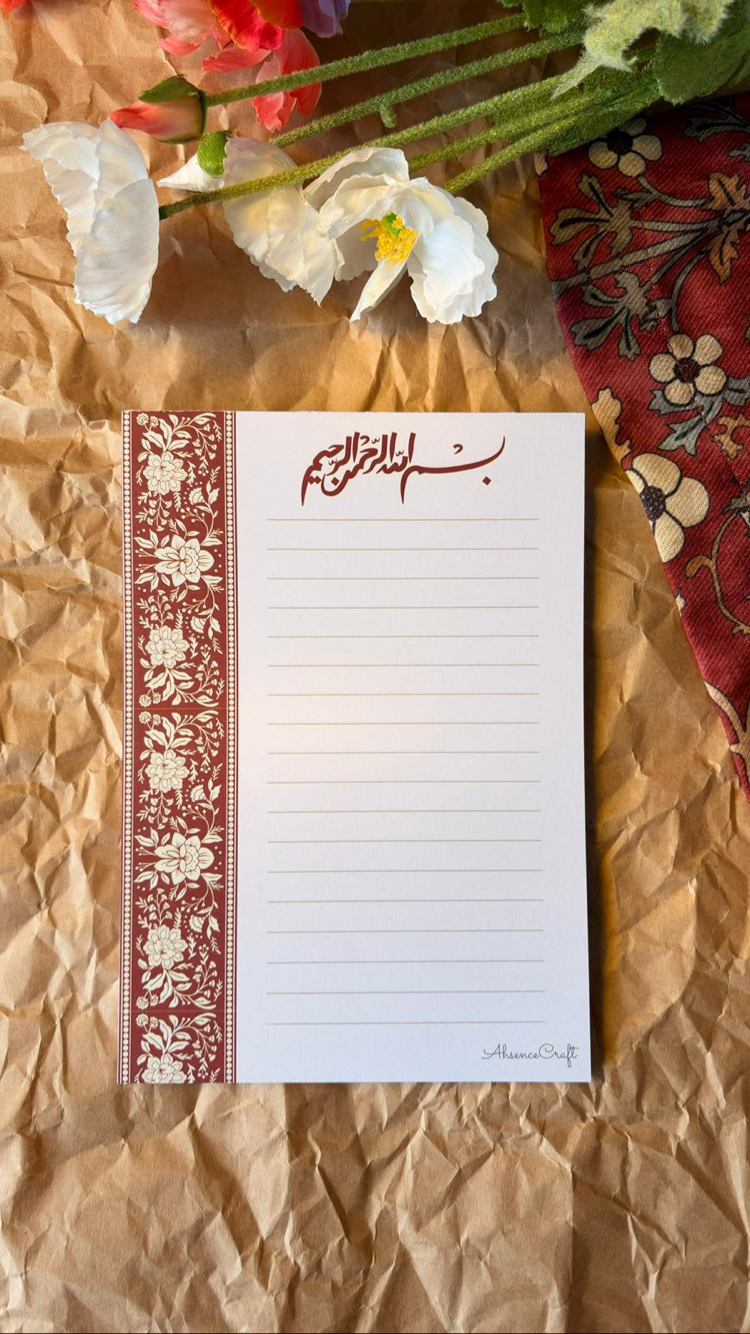 بسم الله الرحمن الرحيم
AhsenceCraft